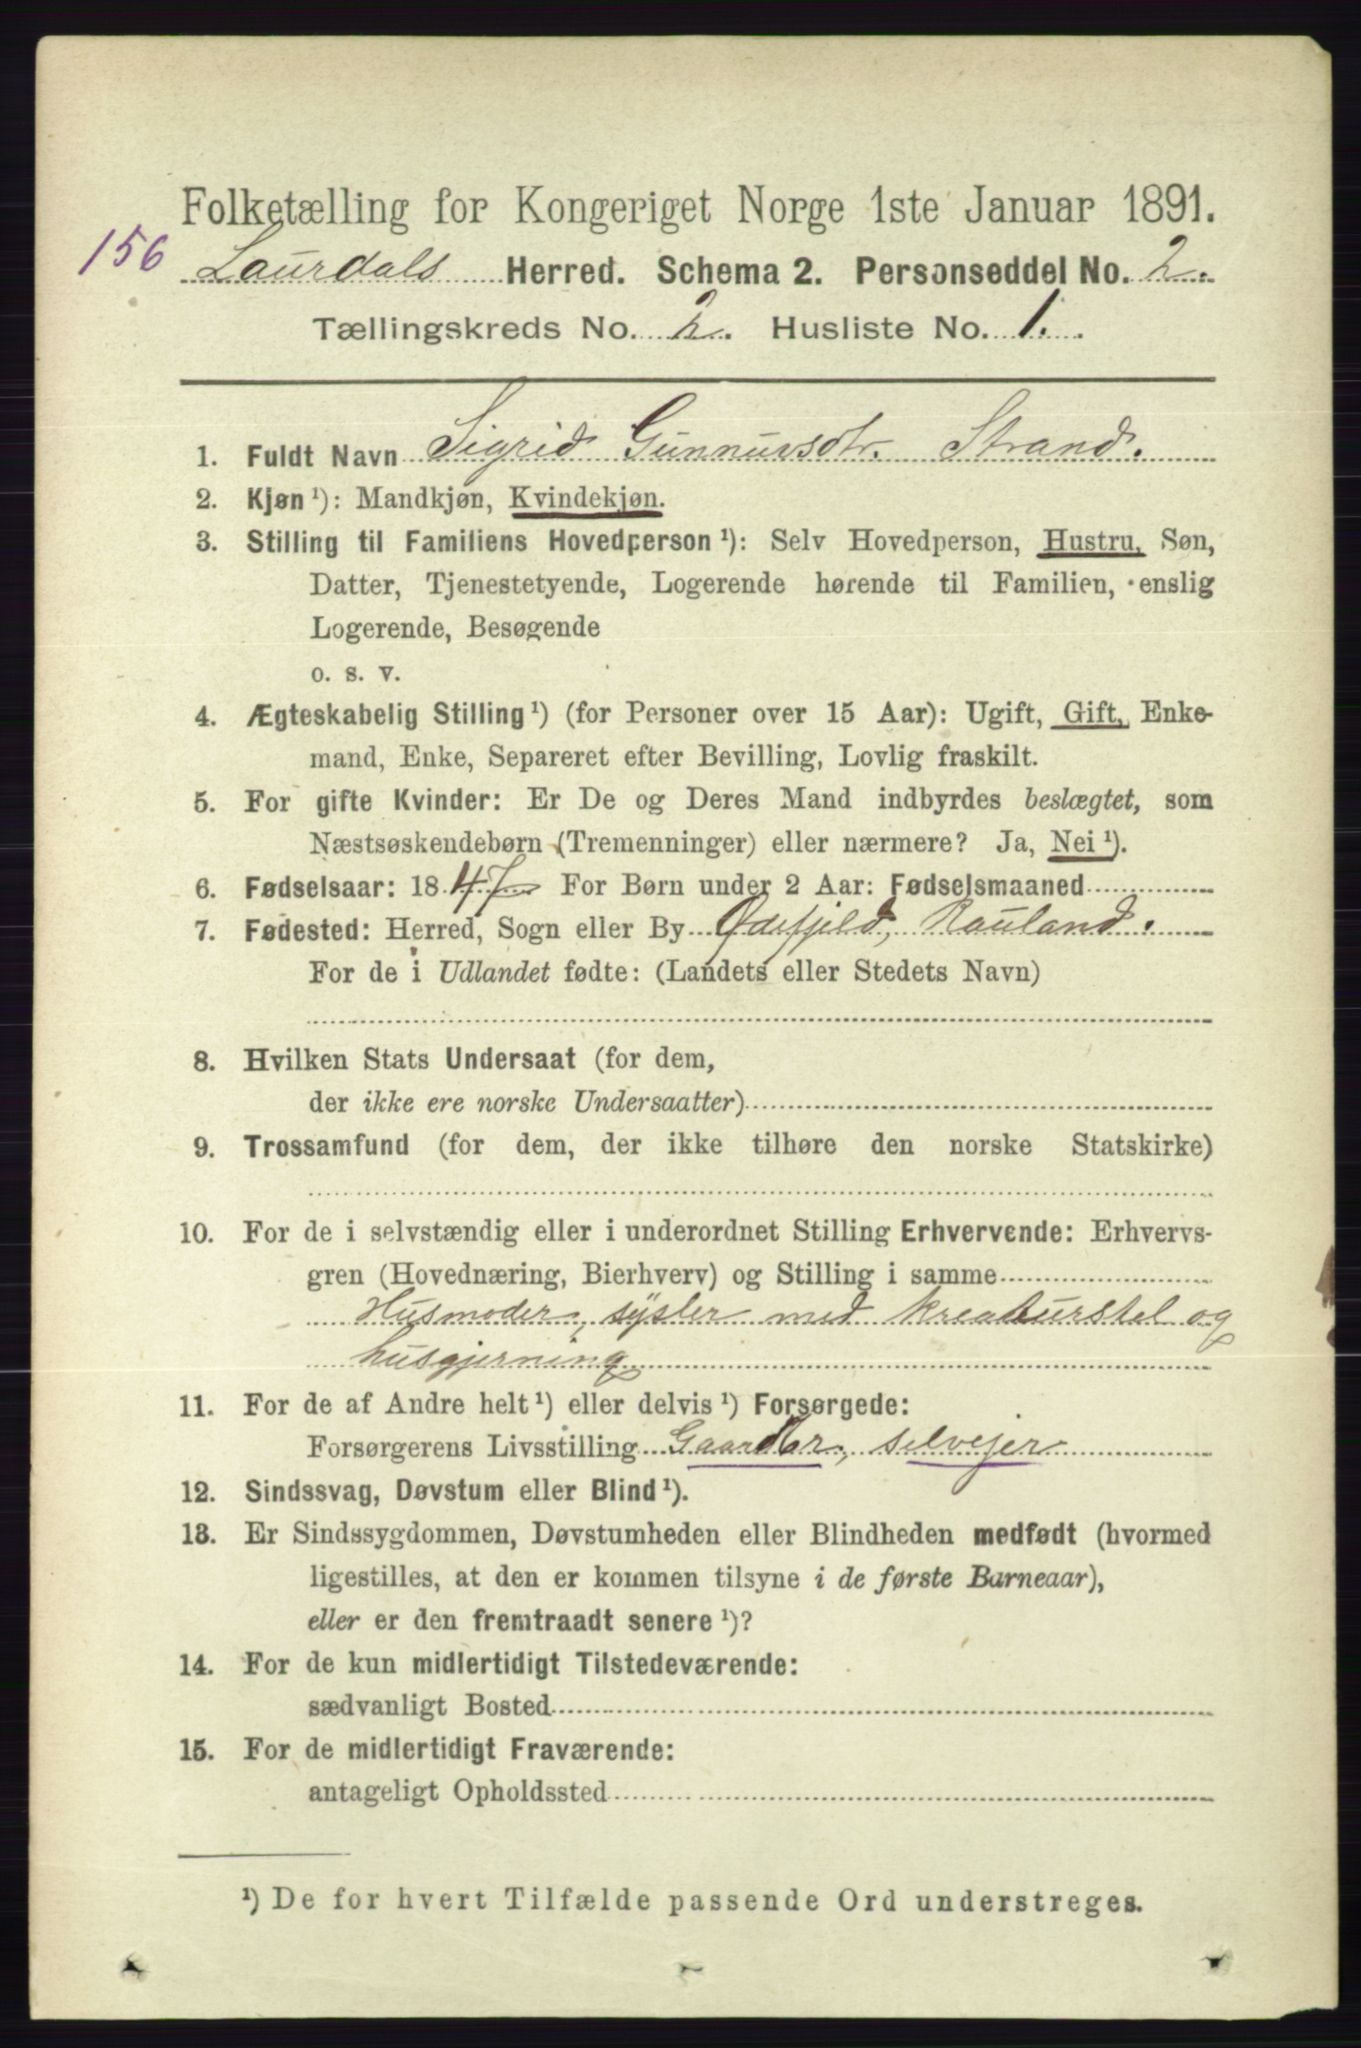 Folketælling for Kongeriget Norge 1ste Januar 1891.
156 Laurdals Herred. Schema 2. Personseddel No. 2.
Tællingskreds No. 2. Husliste No. 1.
1. Fuldt Navn Sigrid Gunnuvsdtr. Strand.
2. Kjøn ¹): Mandkjøn, Kvindekjøn.
3. Stilling til Familiens Hovedperson ¹): Selv Hovedperson, Hustru, Søn,
Datter, Tjenestetyende, Logerende hørende til Familien, enslig
Logerende, Besøgende
o. s. v.
4. Ægteskabelig Stilling ¹) (for Personer over 15 Aar): Ugift, Gift, Enke-
mand, Enke, Separeret efter Bevilling, Lovlig fraskilt.
5. For gifte Kvinder: Er De og Deres Mand indbyrdes beslægtet, som
Næstsøskendebørn (Tremenninger) eller nærmere? Ja, Nei ¹).
6. Fødselsaar: 1847 For Børn under 2 Aar: Fødselsmaaned
7. Fødested: Herred, Sogn eller By Ødefjeld, Rauland.
For de i Udlandet fødte: (Landets eller Stedets Navn)
8. Hvilken Stats Undersaat (for dem,
der ikke ere norske Undersaatter)
9. Trossamfund (for dem, der ikke tilhøre den norske Statskirke)
10. For de i selvstændig eller i underordnet Stilling Erhvervende: Erhvervs-
gren (Hovednæring, Bierhverv) og Stilling i samme
Husmoder, sysler med kreaturstel og
husgjerning
11. For de af Andre helt ¹) eller delvis ¹) Forsørgede:
Forsørgerens Livsstilling Gaardbr, selvejer
12. Sindssvag, Døvstum eller Blind ¹).
13. Er Sindssygdommen, Døvstumheden eller Blindheden medfødt (hvormed
ligestilles, at den er kommen tilsyne i de første Barneaar),
eller er den fremtraadt senere ¹)?
14. For de kun midlertidigt Tilstedeværende:
sædvanligt Bosted
15. For de midlertidigt Fraværende:
antageligt Opholdssted
¹) De for hvert Tilfælde passende Ord understreges.